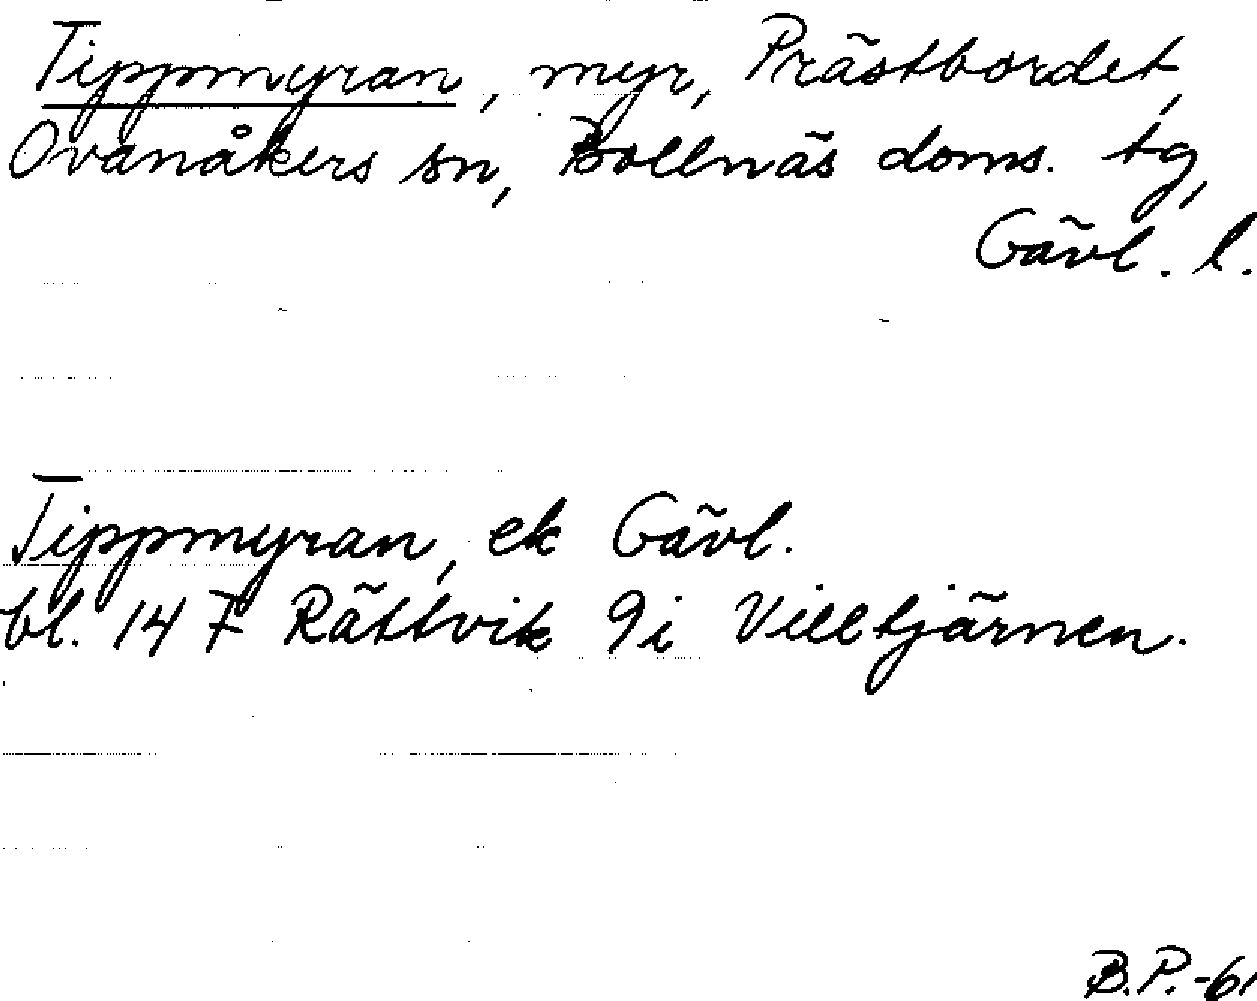 Tippmyran, myr, Prästbordet,
Ovanåkers sn, Bollnäs doms. tg,
Gävl. l.
Tippmyran, ek Gävl.
bl. 147 Rättvik 9i Villtjärnen.
B.P.-61